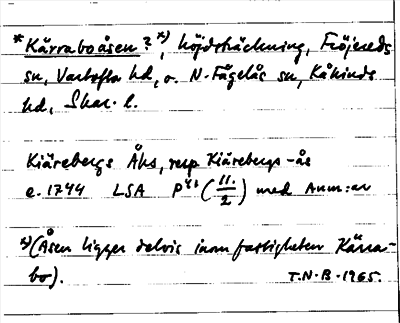 * Kärraboåsen? *), höjdsträckning, Fröjereds
sn, Vartofta hd, o. N. Fågelås sn, Kåkinds
hd, Skar. l.
Kiärebergs Åhs, resp Kiärebergs-ås
e. 1744 LSA P (11./2) med Anm:ar
*) (Åsen ligger delvis inom fastigheten Kärra-
bo).
T.N-B-1965.